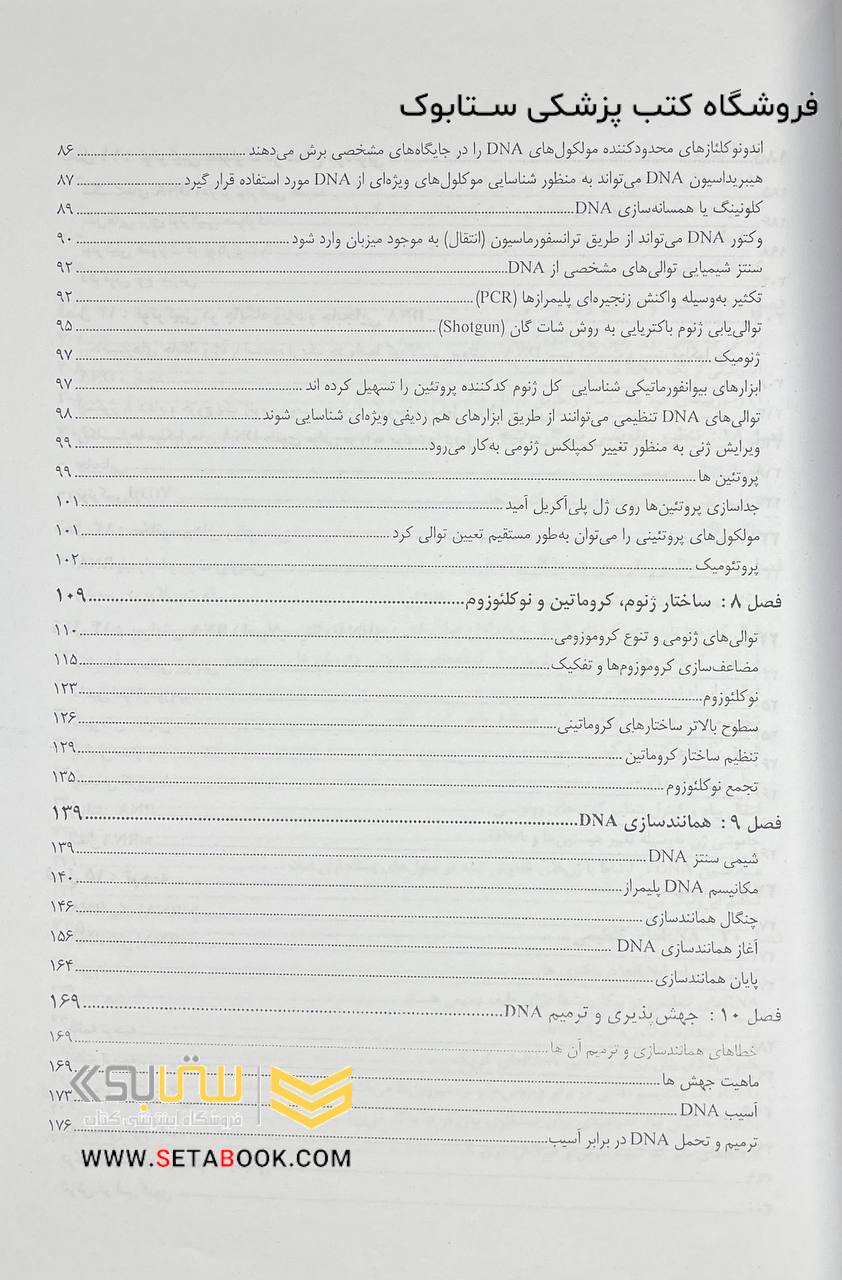 فروشگاه کتب پزشکی ستابوک
اندونوکلئازهای محدودکننده مولکول‌های DNA را در جایگاه‌های مشخصی برش می‌دهند ۸۶
هیبریداسیون DNA می‌تواند به منظور شناسایی موکلول‌های ویژه‌ای از DNA مورد استفاده قرار گیرد ۸۷
کلونینگ یا همسانه‌سازی DNA ۸۹
وکتور DNA می‌تواند از طریق ترانسفورماسیون (انتقال) به موجود میزبان وارد شود ۹۰
سنتز شیمیایی توالی‌های مشخصی از DNA ۹۲
تکثیر به‌وسیله واکنش زنجیره‌ای پلیمرازها (PCR) ۹۲
توالی‌یابی ژنوم باکتریایی به روش شات گان (Shotgun) ۹۵
ژنومیک ۹۷
ابزارهای بیوانفورماتیکی شناسایی کل ژنوم کدکننده پروتئین را تسهیل کرده اند ۹۷
توالی‌های DNA تنظیمی می‌توانند از طریق ابزارهای هم ردیفی ویژه‌ای شناسایی شوند ۹۸
ویرایش ژنی به منظور تغییر کمپلکس ژنومی به‌کار می‌رود ۹۹
پروتئین ها ۹۹
جداسازی پروتئین‌ها روی ژل پلی‌آکریل آمید ۱۰۱
مولکول‌های پروتئینی را می‌توان به‌طور مستقیم تعیین توالی کرد ۱۰۱
پروتئومیک ۱۰۲
فصل ۸: ساختار ژنوم، کروماتین و نوکلئوزوم ۱۰۹
توالی‌های ژنومی و تنوع کروموزومی ۱۱۰
مضاعف‌سازی کروموزوم‌ها و تفکیک ۱۱۵
نوکلئوزوم ۱۲۳
سطوح بالاتر ساختارهای کروماتینی ۱۲۶
تنظیم ساختار کروماتین ۱۲۹
تجمع نوکلئوزوم ۱۳۵
فصل ۹: همانندسازی DNA ۱۳۹
شیمی سنتز DNA ۱۳۹
مکانیسم DNA پلیمراز ۱۴۰
چنگال همانندسازی ۱۴۶
آغاز همانندسازی DNA ۱۵۶
پایان همانندسازی ۱۶۴
فصل ۱۰: جهش‌پذیری و ترمیم DNA ۱۶۹
خطاهای همانندسازی و ترمیم آن ها ۱۶۹
ماهیت جهش ها ۱۶۹
آسیب DNA ۱۷۳
ترمیم و تحمل DNA در برابر آسیب ۱۷۶
ستابوک
فروشگاه اینترنتی کتاب
WWW.SETABOOK.COM